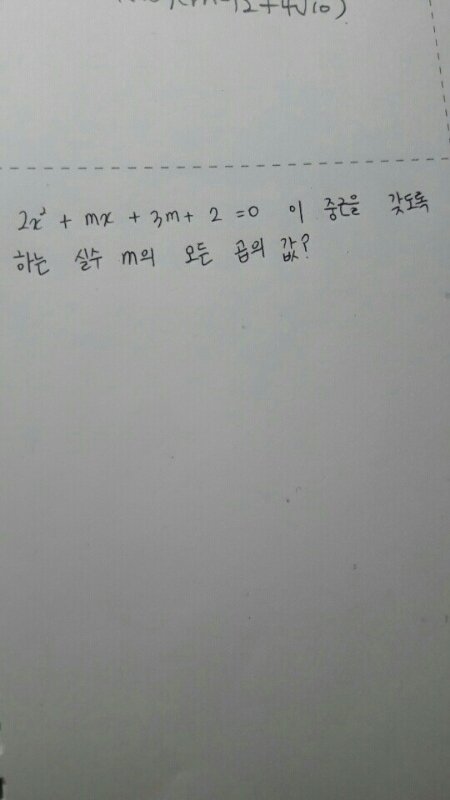 -12+4√10)
2x² + mx + 3m + 2 = 0 이 중근을 갖도록
하는 실수 m의 모든 곱의 값?